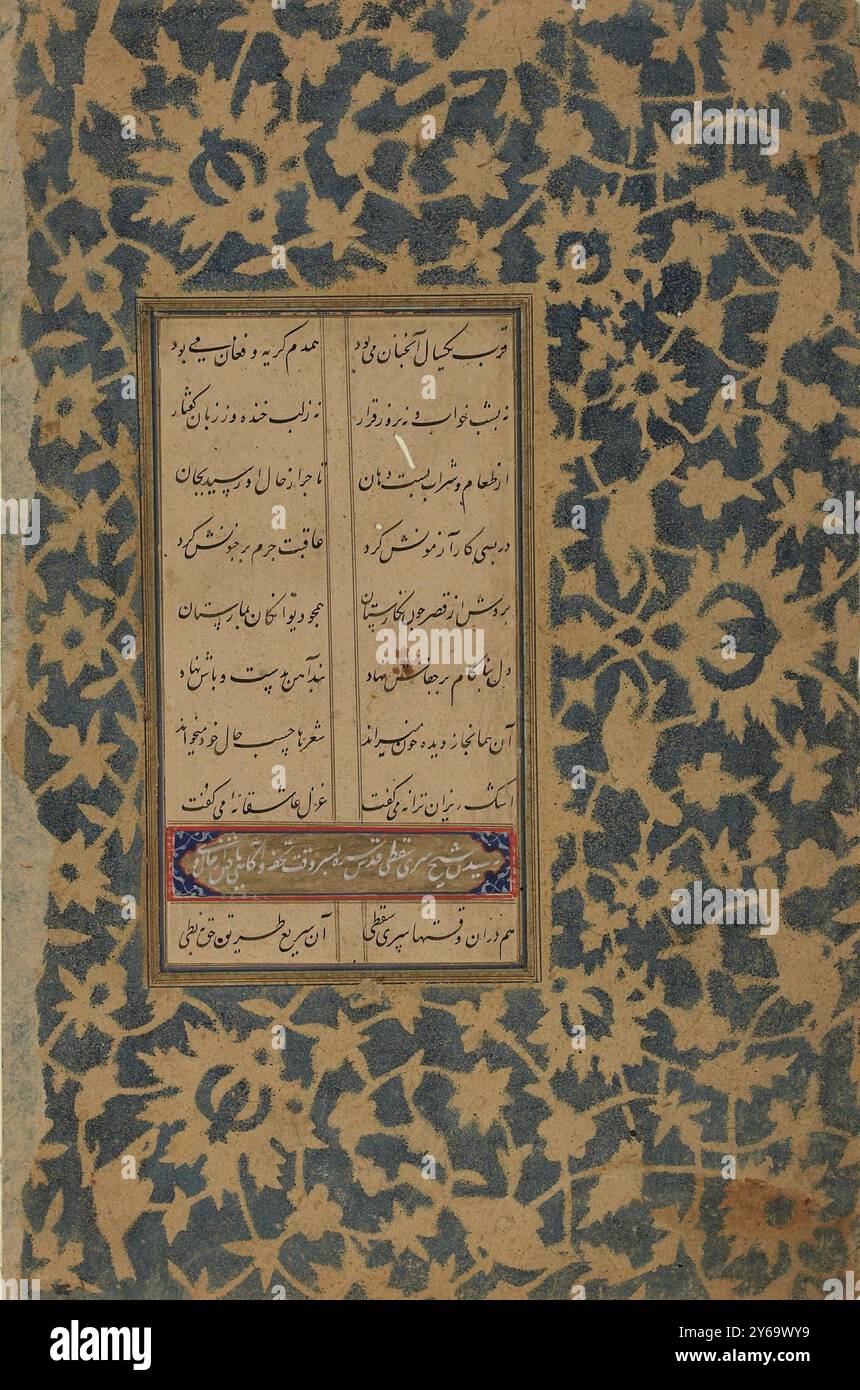 قرب یکسال آنچنان می بود همدم گریه و فغان می بود
نه بشب خواب و نه بروز قرار نه زلب خنده و ز زبان گفتار
از طعام و شراب بست دهان تاجر از حال او رسید بجان
در بسی کار آزمونش کرد عاقبت جزم بر جنونش کرد
بردش از قصر چون نگارستان همچو دیوانگان بمارستان
دل بناکام بر جفاش نهاد بند آهن بدست و پاش نهاد
آن همانجا ز دیده خون میراند شعرها حسب حال خود میخواند
اشک ریزان ترانه می گفت غزل عاشقانه می گفت
رسیدن شیخ سری سقطی قدس سره بسر وقت تحفه و آگاهی یافتن
هم دران وقتها سری سقطی آن سریع طریق حق نه بطی
alamy
Image ID: 2Y69WY9
www.alamy.com